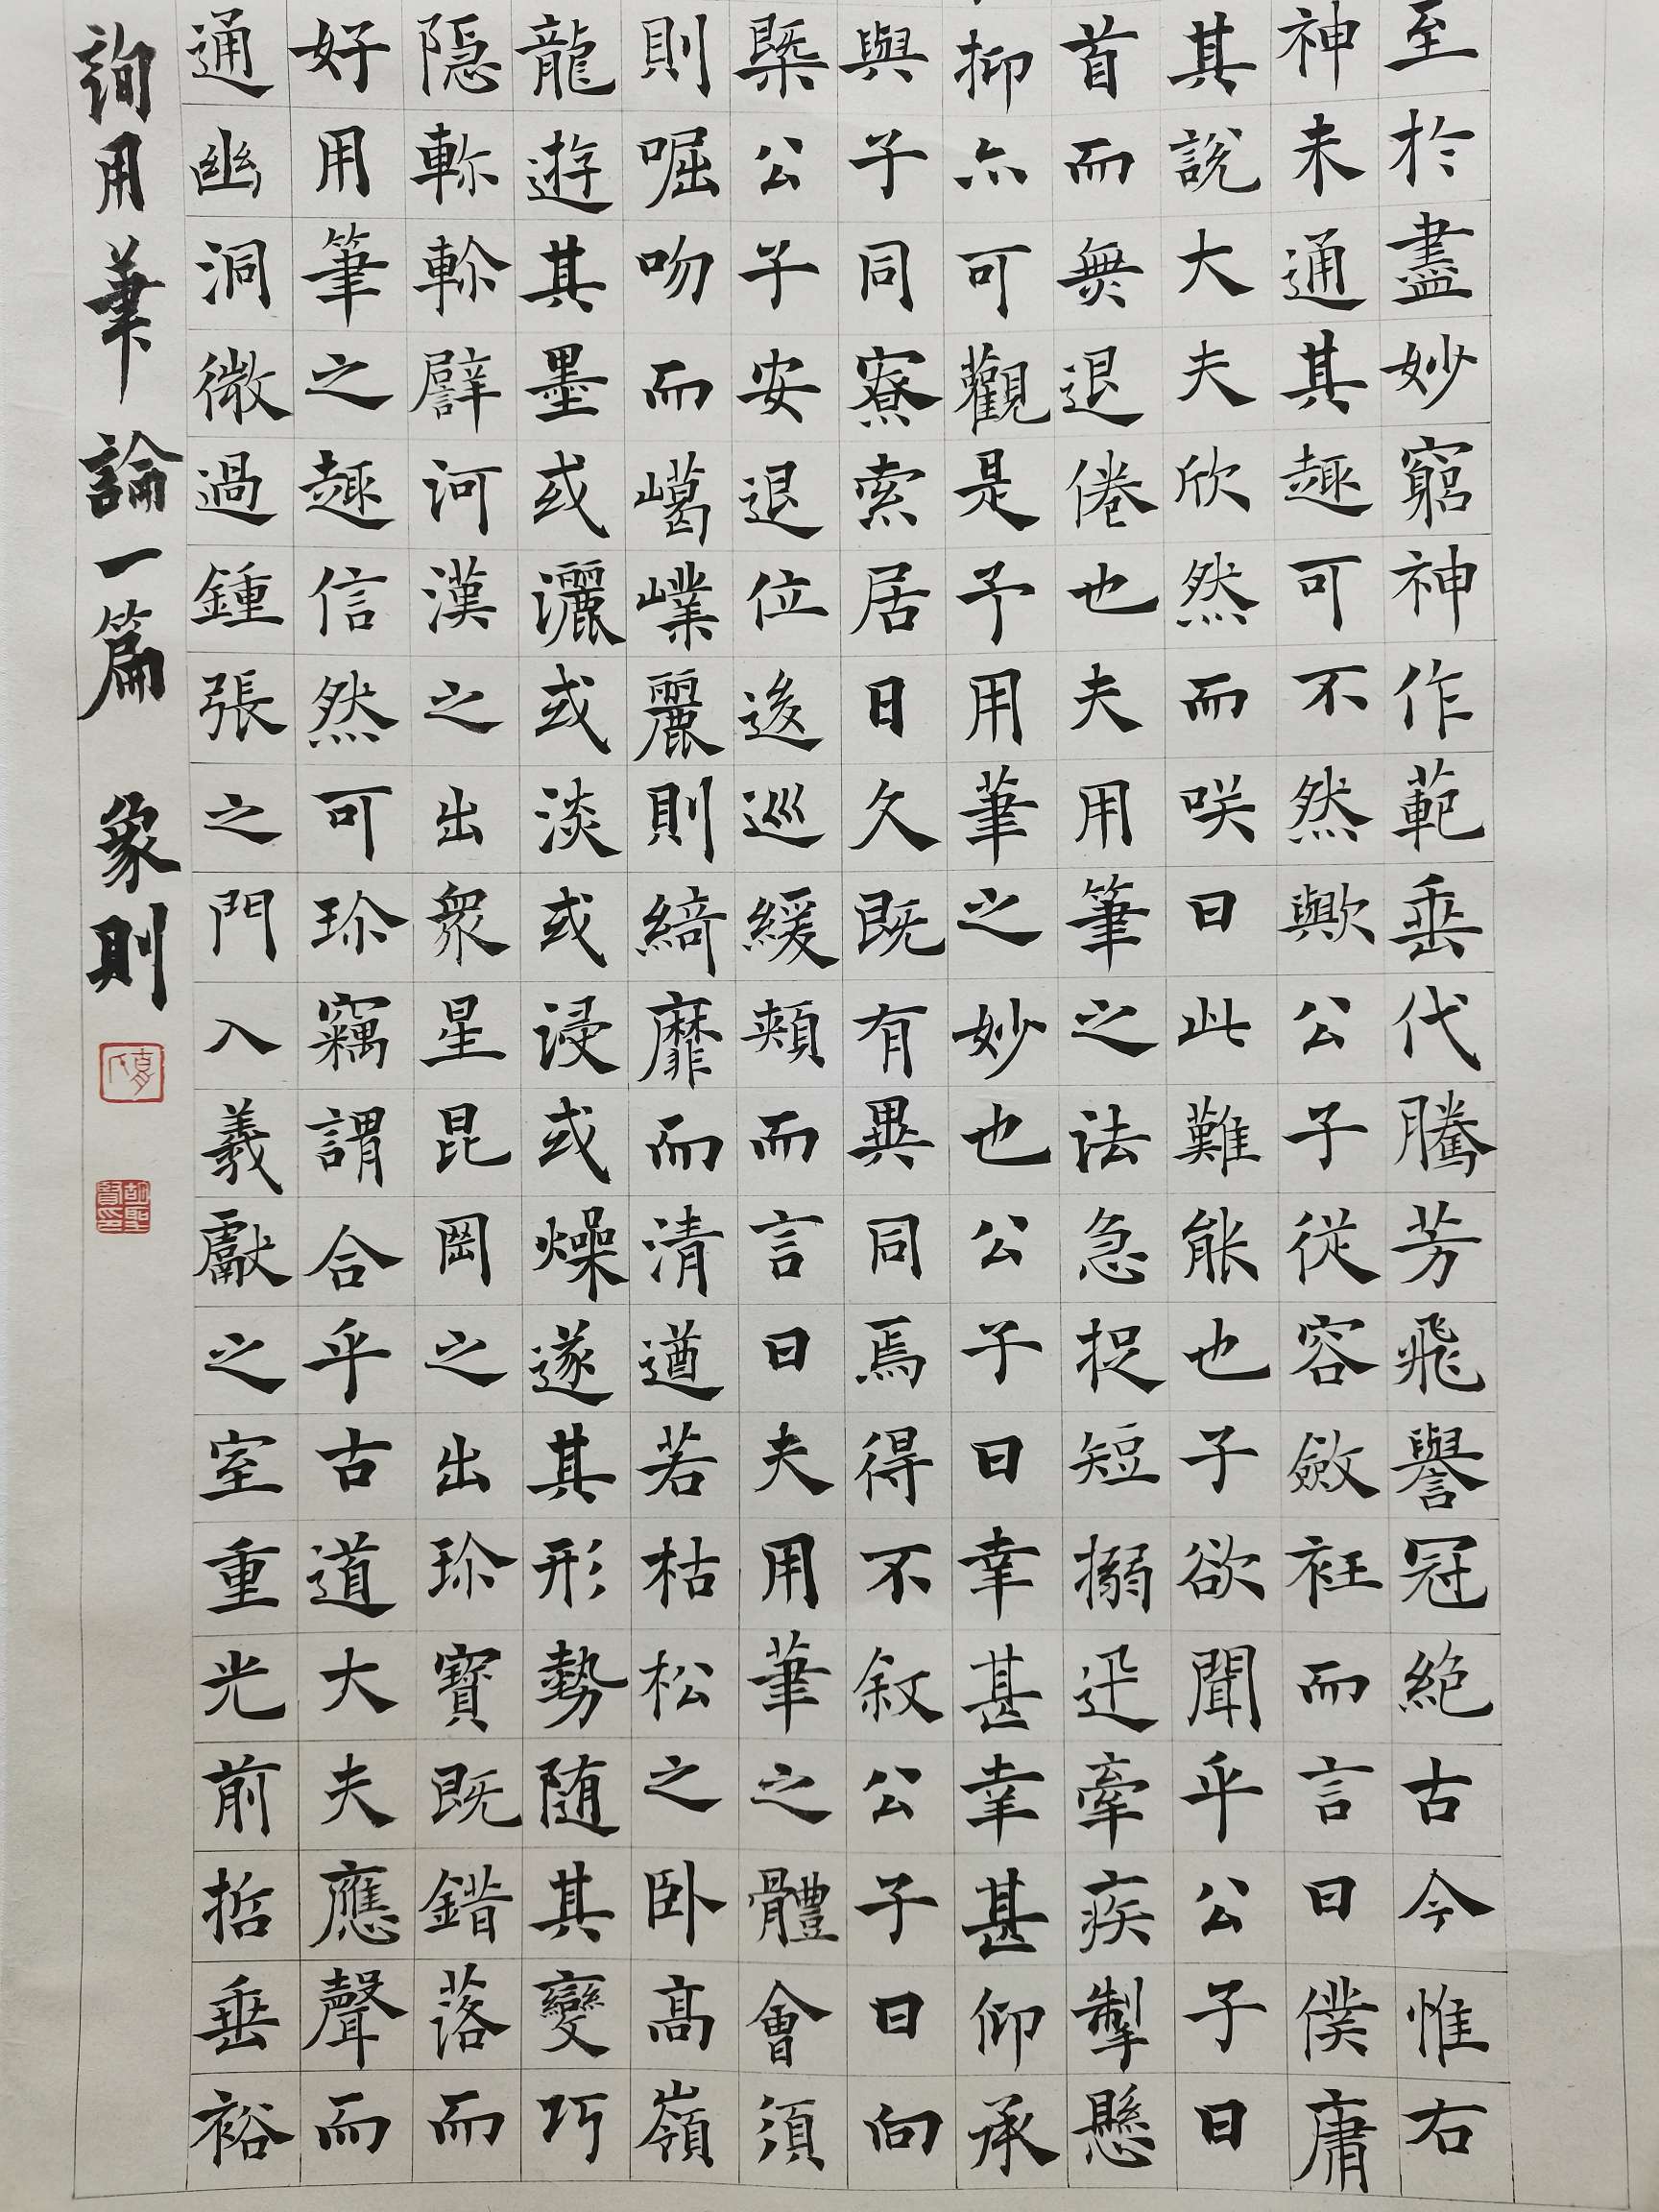 至於盡妙窮神作範垂代騰芳飛譽冠絶古今惟右
神未通其趣可不然歟公子從容斂衽而言曰僕庸
其說大夫欣然而咲曰此難能也子欲聞乎公子曰
首而無退倦也夫用筆之法急捉短搦迅牽疾掣懸
抑亦可觀是予用筆之妙也公子曰幸甚幸甚仰承
與子同寮索居日久既有異同焉得不叙公子曰向
槩公子安退位逡巡緩頰而言曰夫用筆之體會須
則崛吻而嶱嶫麗則綺靡而清遒若枯松之卧高嶺
龍遊其墨或灑或淡或浸或燥遂其形勢随其變巧
隠軫軫礔河漢之出衆星昆岡之出珎寶既錯落而
好用筆之趣信然可珎竊謂合乎古道大夫應聲而
通幽洞微過鍾張之門入羲獻之室重光前哲垂裕
詢用筆論一篇 象則